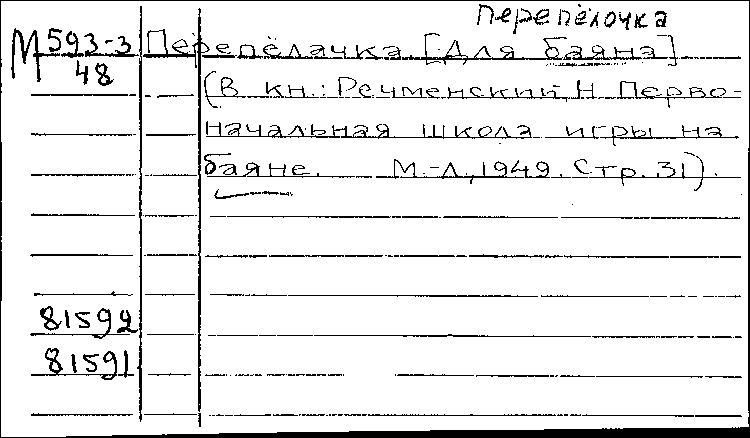 Перепёлочка
М 593-3 Перепёлачка. [Для баяна]
48 (В кн.: Речменский Н. Перво-
начальная школа игры на
баяне. М.-Л., 1949. Стр. 31).
81592
81591